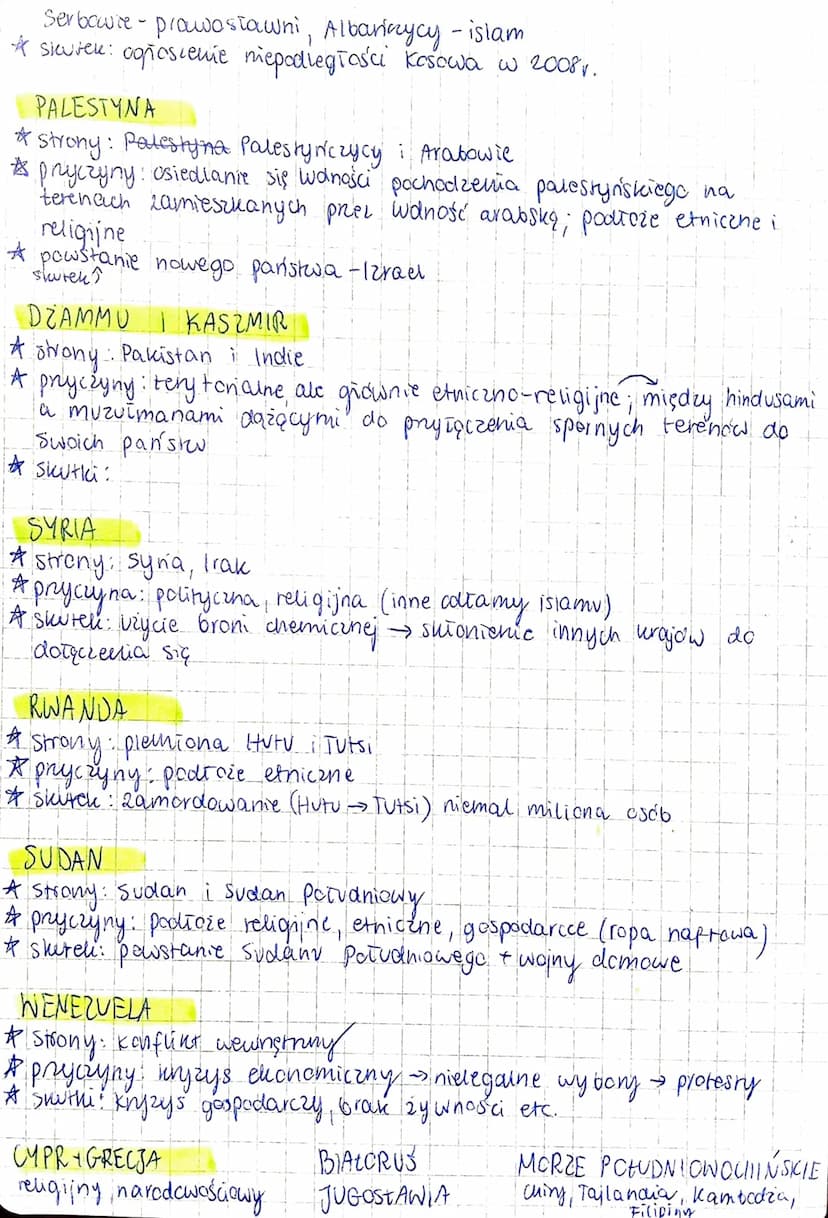 Serbowie - prawosławni, Albańczycy - islam
* skutek: ogłoszenie niepodległości Kosowa w 2008r.
PALESTYNA
* strony: Palestyna Palestyńczycy i Arabowie
* przyczyny: osiedlanie się ludności pochodzenia palestyńskiego na
terenach zamieszkanych przez ludność arabską; podłoże etniczne i
religijne
* powstanie nowego państwa - Izrael
skutek↑
DŻAMMU I KASZMIR
* strony: Pakistan i Indie
* przyczyny: terytorialne, ale głównie etniczno-religijne; między hindusami
a muzułmanami dążącymi do przyłączenia spornych terenów do
swoich państw
* skutki:
SYRIA
* strony: Syria, Irak
* przyczyna: polityczna, religijna (inne odłamy islamu)
* skutek: użycie broni chemicznej → skłonienie innych krajów do
dołączenia się
RWANDA
* strony: plemiona Hutu i Tutsi
* przyczyny: podłoże etniczne
* skutek: zamordowanie (Hutu → Tutsi) niemal miliona osób
SUDAN
* strony: Sudan i Sudan Południowy
* przyczyny: podłoże religijne, etniczne, gospodarcze (ropa naftowa)
* skutek: powstanie Sudanu Południowego + wojny domowe
WENEZUELA
* strony: konflikt wewnętrzny
* przyczyny: kryzys ekonomiczny → nielegalne wybory → protesty
* skutki: kryzys gospodarczy, brak żywności etc.
CYPR + GRECJA BIAŁORUŚ MORZE POŁUDNIOWOCHIŃSKIE
religijny, narodowościowy JUGOSŁAWIA Chiny, Tajlandia, Kambodża,
Filipiny